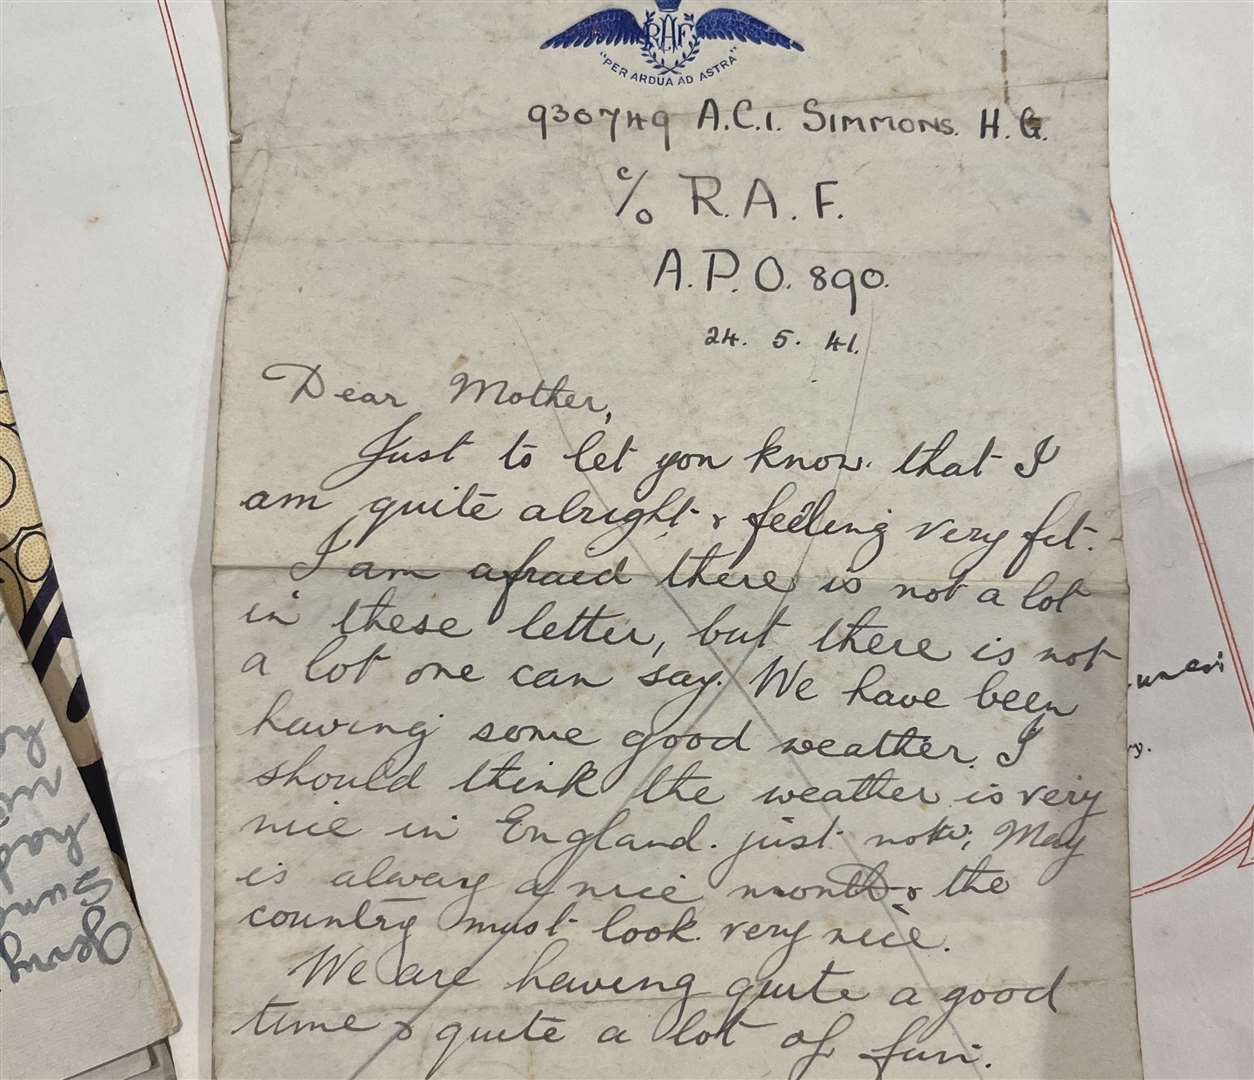 RAF
"PER ARDUA AD ASTRA"
930749 A.C.1. SIMMONS. H.G.
c/o R.A.F.
A.P.O. 890.
24. 5. 41.
Dear Mother,
Just to let you know that I
am quite alright & feeling very fit.
I am afraid there is not a lot
in these letter, but there is not
a lot one can say. We have been
having some good weather. I
should think the weather is very
nice in England just now, May
is always a nice month & the
country must look very nice.
We are having quite a good
time & quite a lot of fun.